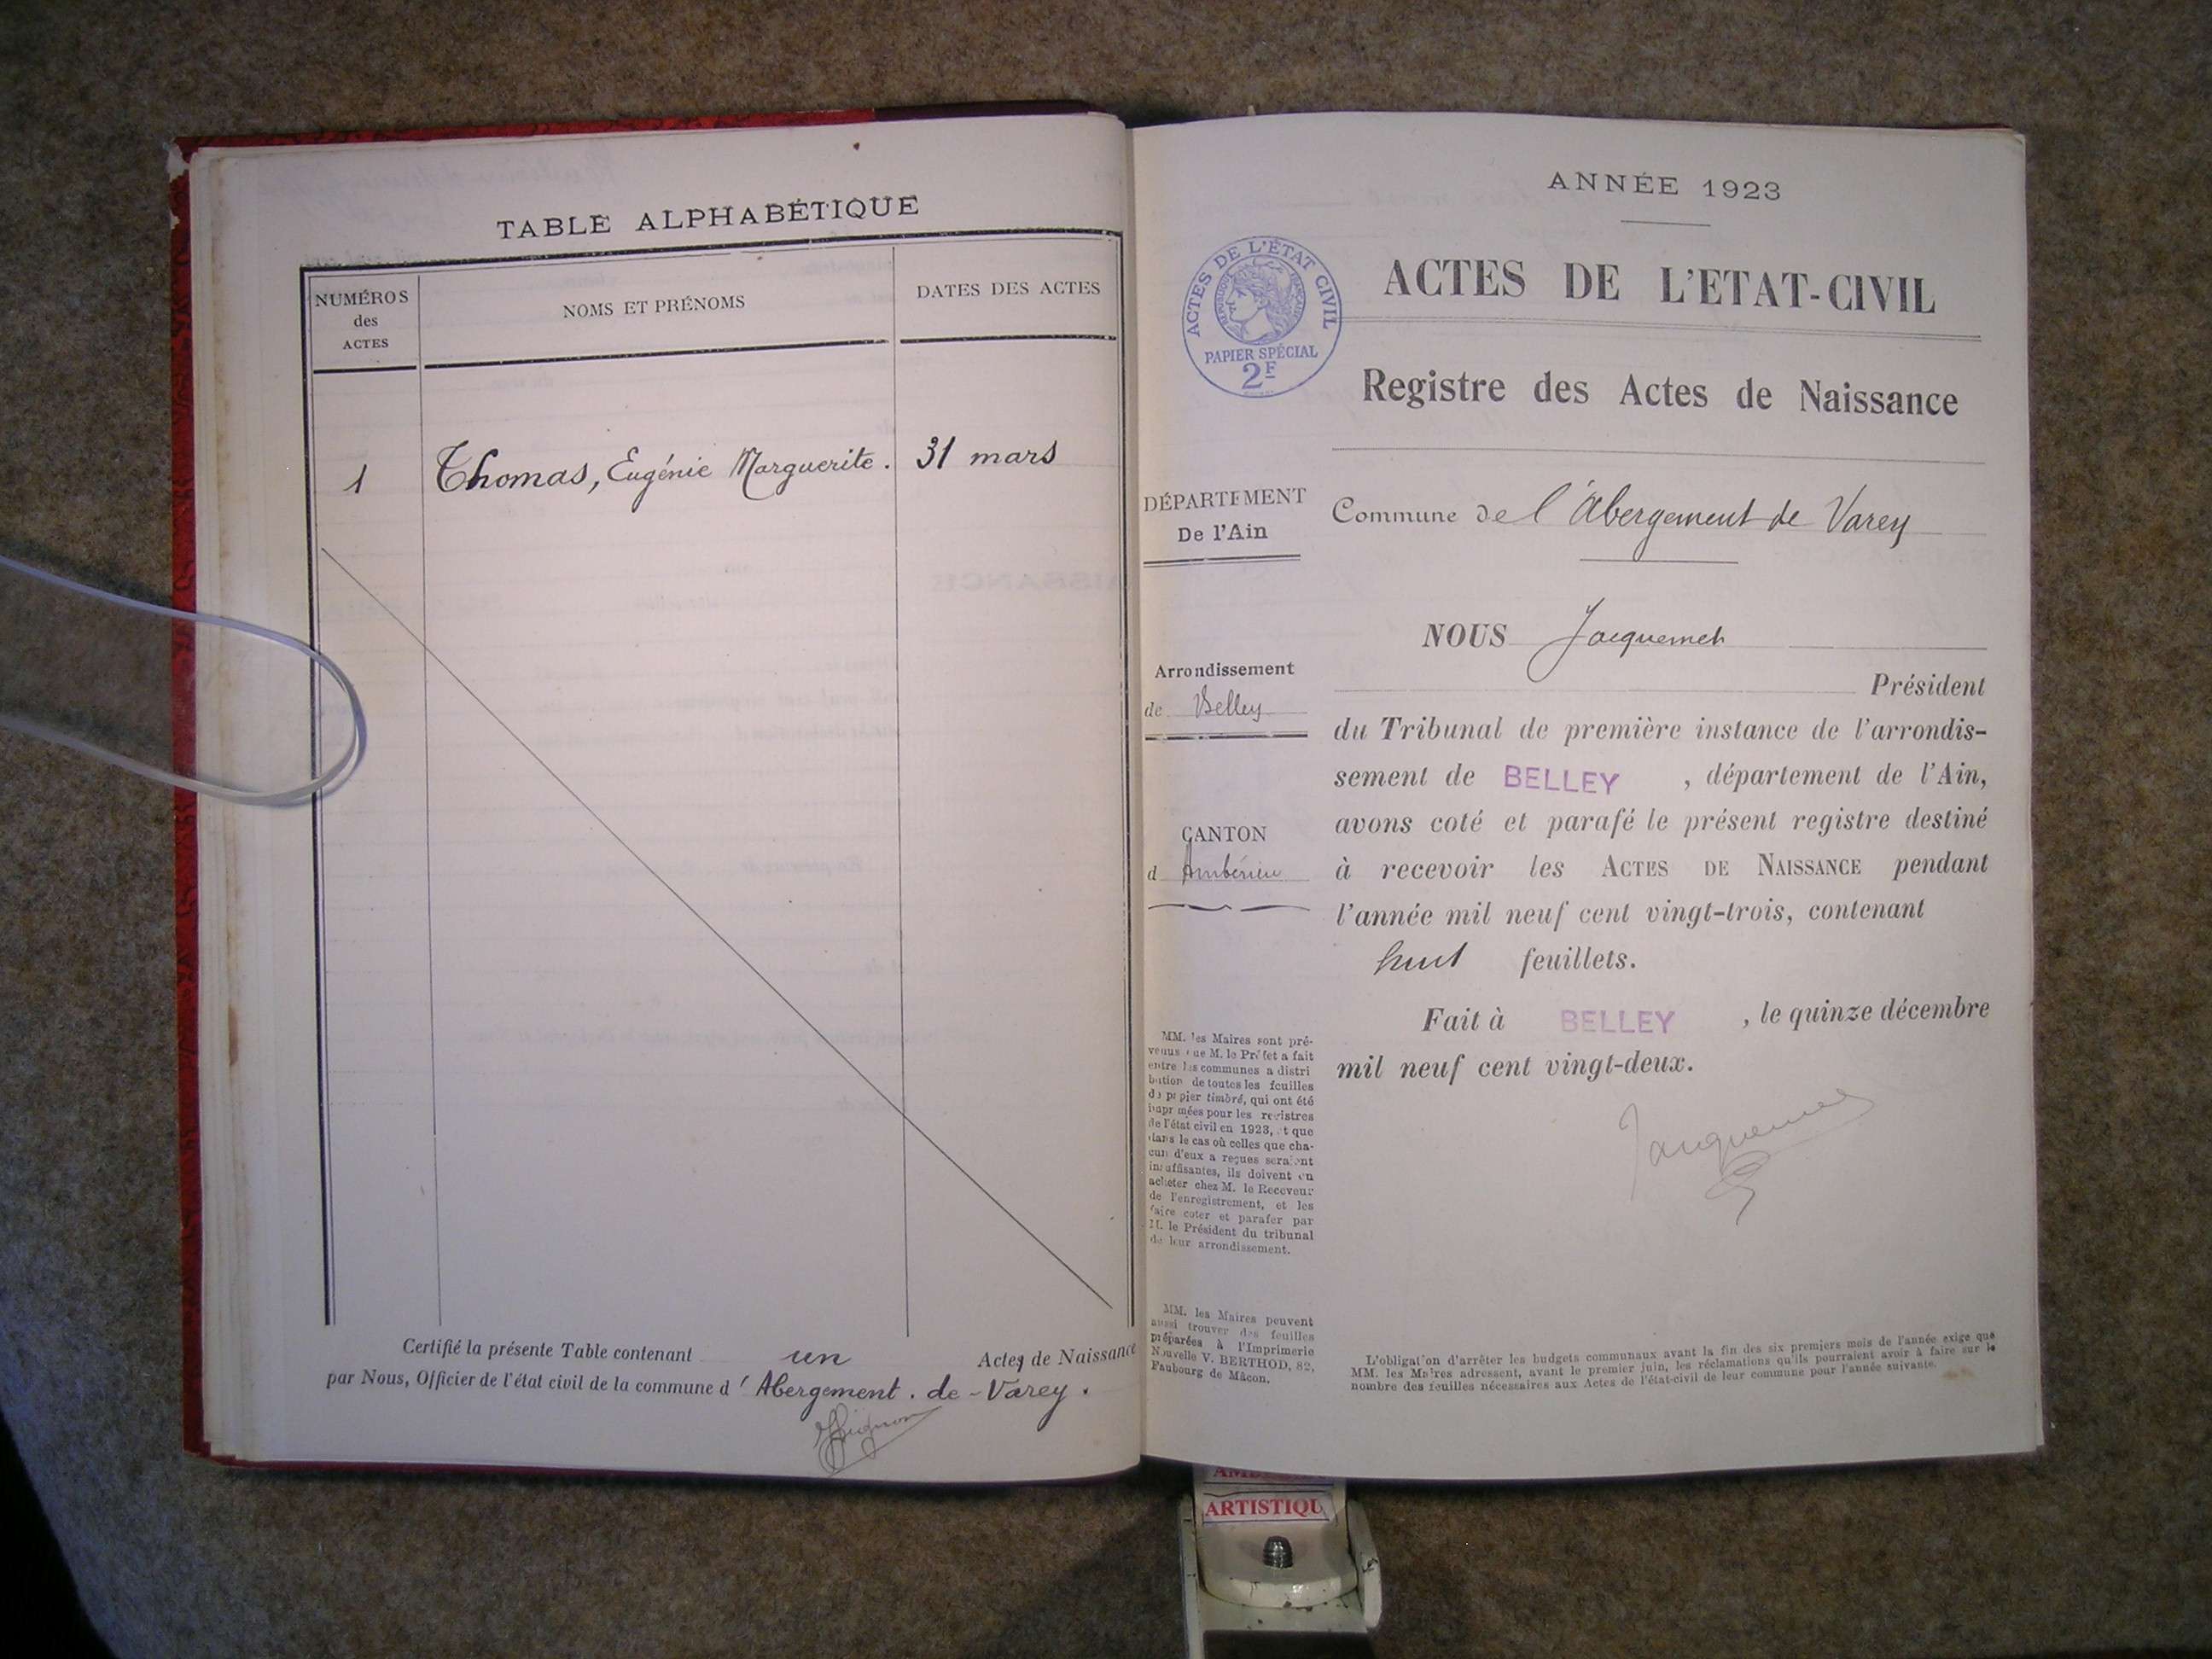 TABLE ALPHABÉTIQUE
NUMÉROS
des
ACTES
NOMS ET PRÉNOMS
DATES DES ACTES
1 Thomas, Eugénie Marguerite. 31 mars
Certifié la présente Table contenant un Actes de Naissance
par Nous, Officier de l'état civil de la commune d' Abergement-de-Varey.
ANNÉE 1923
ACTES DE L'ÉTAT CIVIL
RÉPUBLIQUE FRANÇAISE
PAPIER SPÉCIAL
2F
ACTES DE L'ETAT-CIVIL
Registre des Actes de Naissance
DÉPARTEMENT
De l'Ain
Arrondissement
de Belley
CANTON
d Ambérieu
MM. les Maires sont pré-
venus que M. le Préfet a fait
entre les communes a distri
bution de toutes les feuilles
de papier timbré, qui ont été
impr mées pour les registres
de l'état civil en 1923, et que
dans le cas où celles que cha-
cun d'eux a reçues seraient
insuffisantes, ils doivent en
acheter chez M. le Receveur
de l'enregistrement, et les
faire coter et parafer par
M. le Président du tribunal
de leur arrondissement.
MM. les Maires peuvent
aussi trouver des feuilles
préparées à l'Imprimerie
Nouvelle V. BERTHOD, 82,
Faubourg de Mâcon.
Commune de l'Abergement de Varey
NOUS Jacquemet
Président
du Tribunal de première instance de l'arrondis-
sement de BELLEY , département de l'Ain,
avons coté et parafé le présent registre destiné
à recevoir les ACTES DE NAISSANCE pendant
l'année mil neuf cent vingt-trois, contenant
huit feuillets.
Fait à BELLEY , le quinze décembre
mil neuf cent vingt-deux.
Jacquemet
L'obligation d'arrêter les budgets communaux avant la fin des six premiers mois de l'année exige que
MM. les Maires adressent, avant le premier juin, les réclamations qu'ils pourraient avoir à faire sur le
nombre des feuilles nécessaires aux Actes de l'état-civil de leur commune pour l'année suivante.
ARTISTIQU